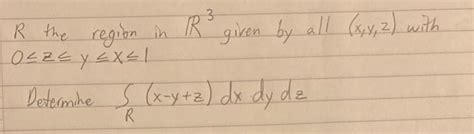 R the region in ℝ³ given by all (x,y,z) with
0≤z≤y≤x≤1
Determine ∫_R (x-y+z) dx dy dz